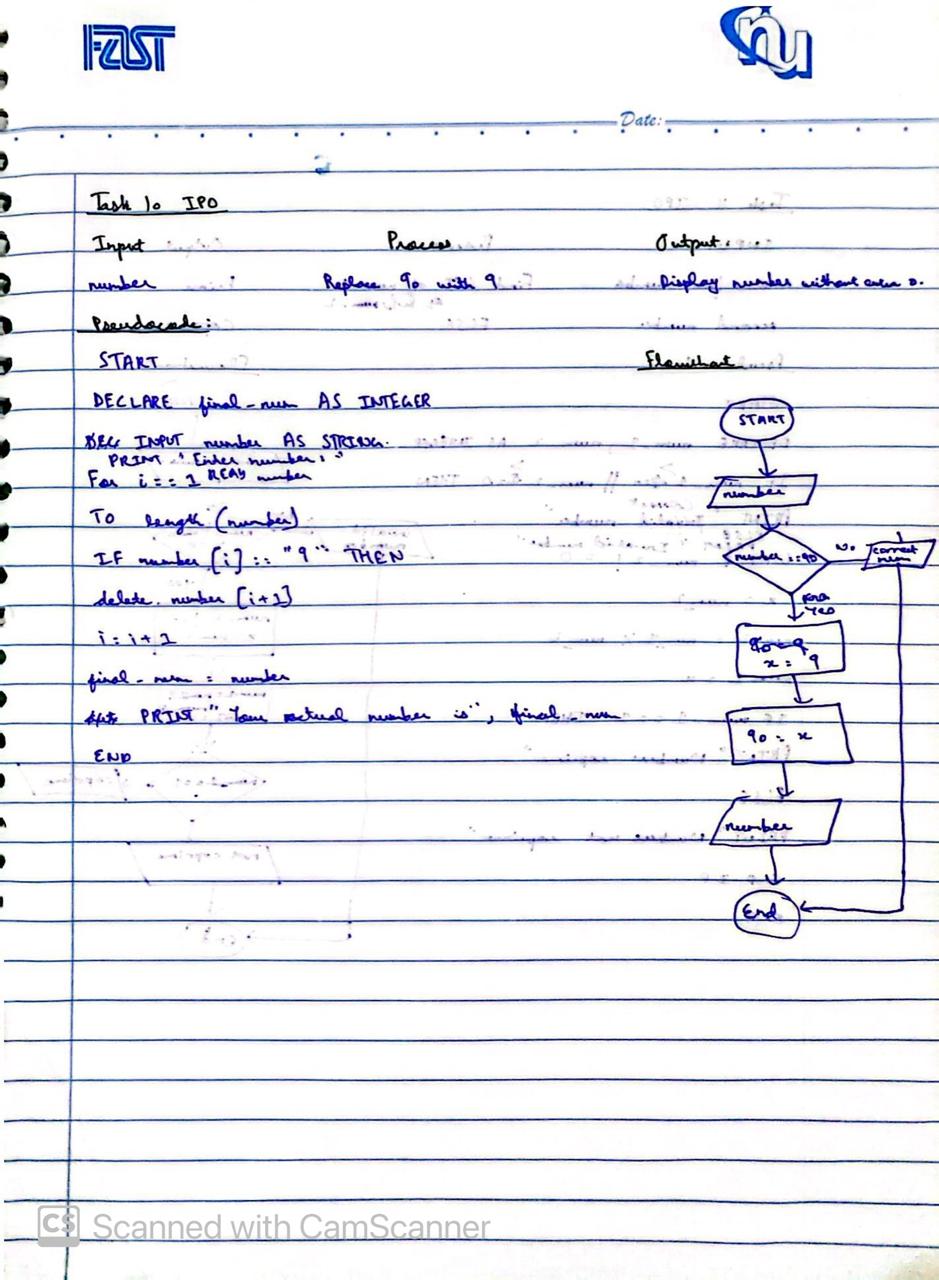 FAST
nu
Date:
Task 1o IPO
Input Process Output:
number Replace 90 with 9 Display number without 0.
Pseudocode:
START Flowchart
DECLARE final-num AS INTEGER
INPUT number AS STRING.
PRINT "Enter number:"
For i == 1 READ number
TO length (number)
IF number [i] == "9" THEN
delete number [i+1]
i = i + 1
final - num = number
PRINT "Your actual number is", final - num
END
START
number
number == 90
No
correct num
Yes
90 = 9
x = 9
90 = x
number
End
CS Scanned with CamScanner